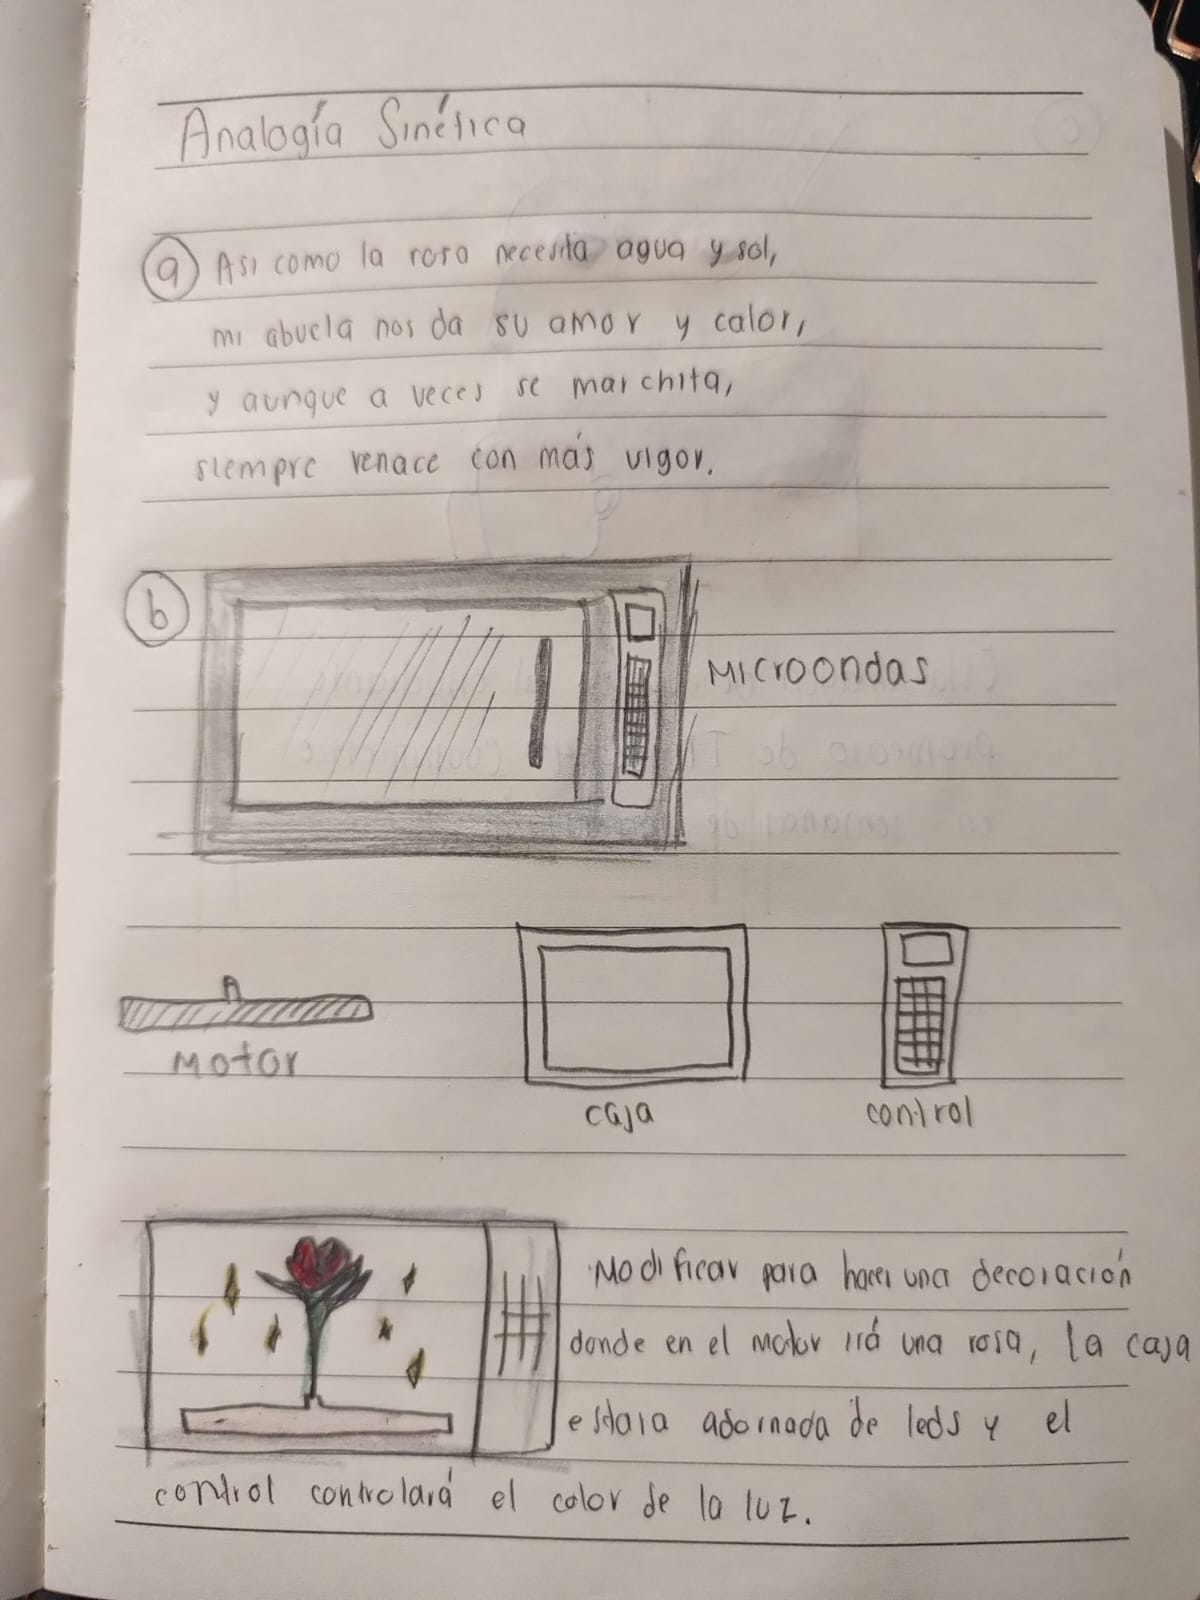 Analogía Sinética
a Asi como la rosa necesita agua y sol,
mi abuela nos da su amor y calor,
y aunque a veces se marchita,
siempre renace con más vigor.
b
Microondas
Motor
caja
control
Modificar para hacer una decoración
donde en el motor irá una rosa, la caja
estara adornada de leds y el
control controlará el color de la luz.